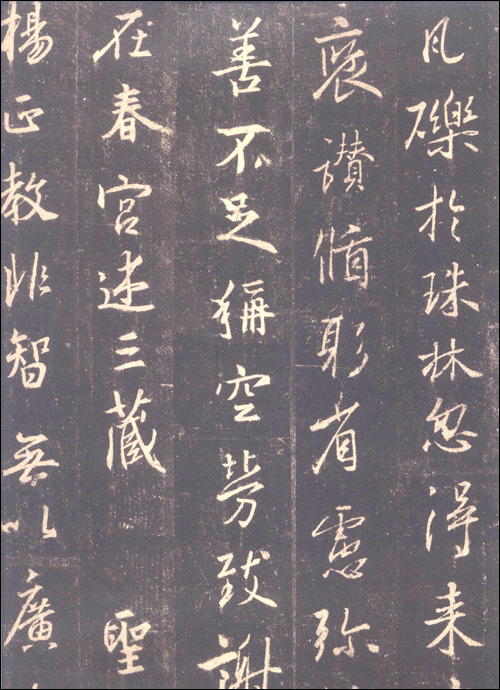 瓦礫於珠林忽得来
褒讚循躬省慮弥
善不足稱空勞致謝
在春宮述三藏 聖
楊正教非智無以廣